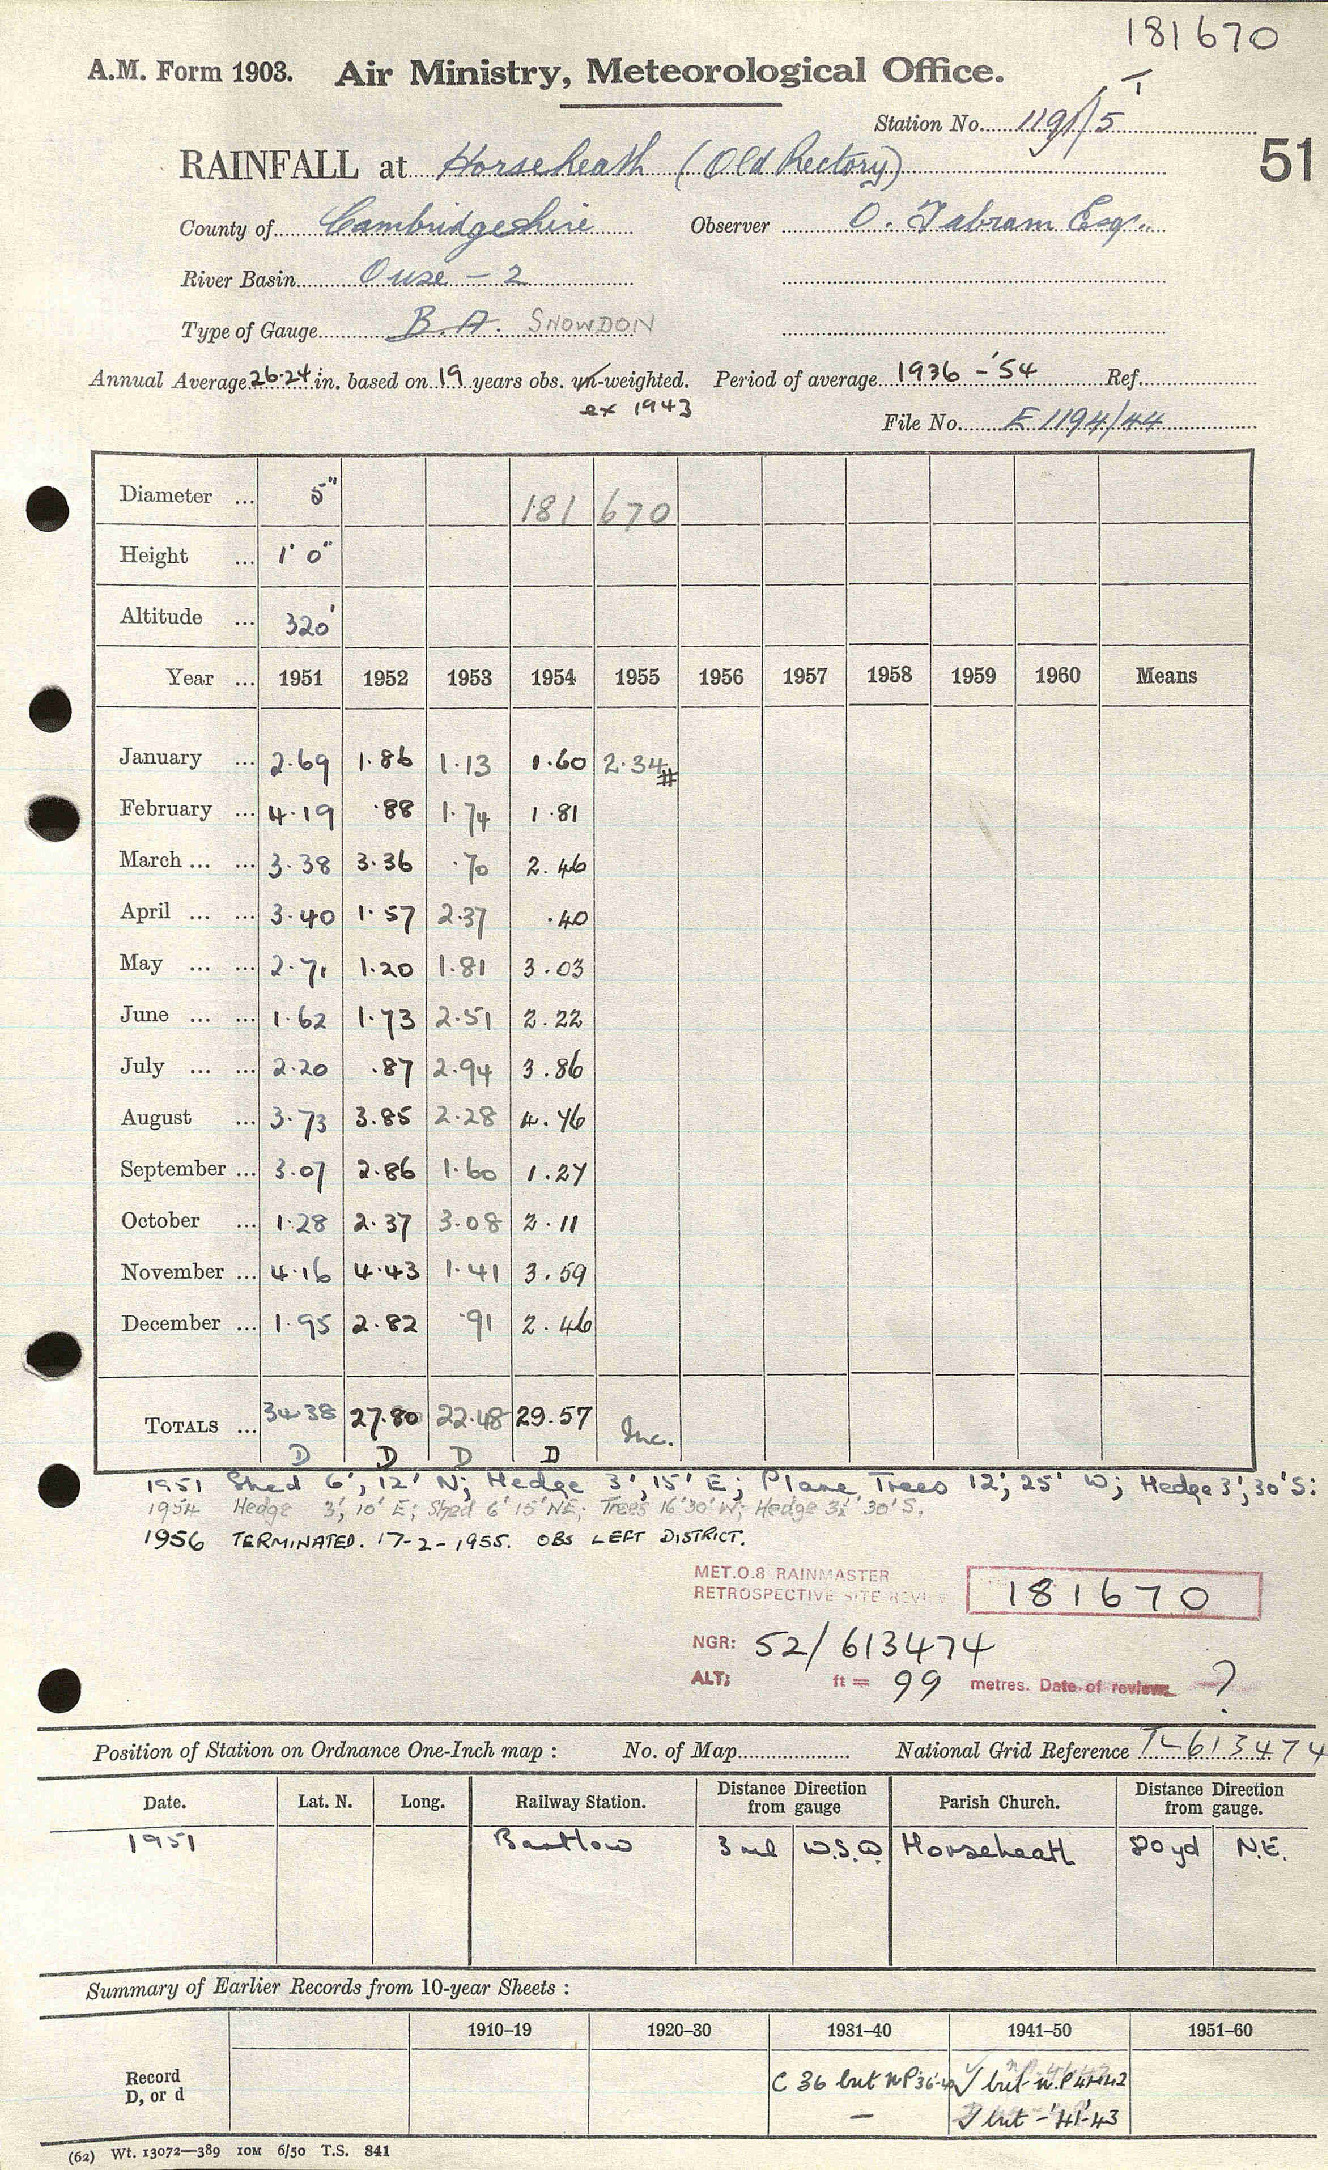 181670
A.M. Form 1903. Air Ministry, Meteorological Office.
Station No. 119/15
51
RAINFALL at Horseheath (Old Rectory)
County of Cambridgeshire Observer O. Tabram Esqr.
River Basin Ouse - 2
Type of Gauge B.A. SNOWDON
Annual Average 26.24 in. based on 19 years obs. un-weighted. Period of average 1936 - '54 Ref.
ex 1943
File No. E 1194/44
Diameter ... 5" 181 670
Height ... 1' 0"
Altitude ... 320'
Year ... 1951 1952 1953 1954 1955 1956 1957 1958 1959 1960 Means
January ... 2.69 1.86 1.13 1.60 2.34 #
February ... 4.19 .88 1.74 1.81
March ... ... 3.38 3.36 .70 2.46
April ... ... 3.40 1.57 2.37 .40
May ... ... 2.71 1.20 1.81 3.03
June ... ... 1.62 1.73 2.51 2.22
July ... ... 2.20 .87 2.94 3.86
August ... 3.73 3.85 2.28 4.76
September ... 3.07 2.86 1.60 1.27
October ... 1.28 2.37 3.08 2.11
November ... 4.16 4.43 1.41 3.59
December ... 1.95 2.82 .91 2.46
TOTALS ... 34.38 27.80 22.48 29.57 Inc.
D D D D
1951 Shed 6', 12' N; Hedge 3', 15' E; Plane Trees 12', 25' W; Hedge 3', 30' S:
1954 Hedge 3', 10' E; Shed 6' 15' NE; Trees 16' 30' W; Hedge 3½' 30' S.
1956 TERMINATED. 17-2-1955. OBS LEFT DISTRICT.
MET.O.8 RAINMASTER
RETROSPECTIVE SITE REVIEW 181670
NGR: 52/613474
ALT: ft = 99 metres. Date of review ?
Position of Station on Ordnance One-Inch map : No. of Map National Grid Reference TL613474
Date. Lat. N. Long. Railway Station. Distance Direction from gauge Parish Church. Distance Direction from gauge.
1951 Bartlow 3 ml W.S.W. Horseheath 80 yd N.E.
Summary of Earlier Records from 10-year Sheets :
1910–19 1920–30 1931–40 1941–50 1951–60
Record D, or d
C 36 but n P 36-40 but n.P 41-42
— but - '41-43
(62) Wt. 13072—389 10M 6/50 T.S. 841